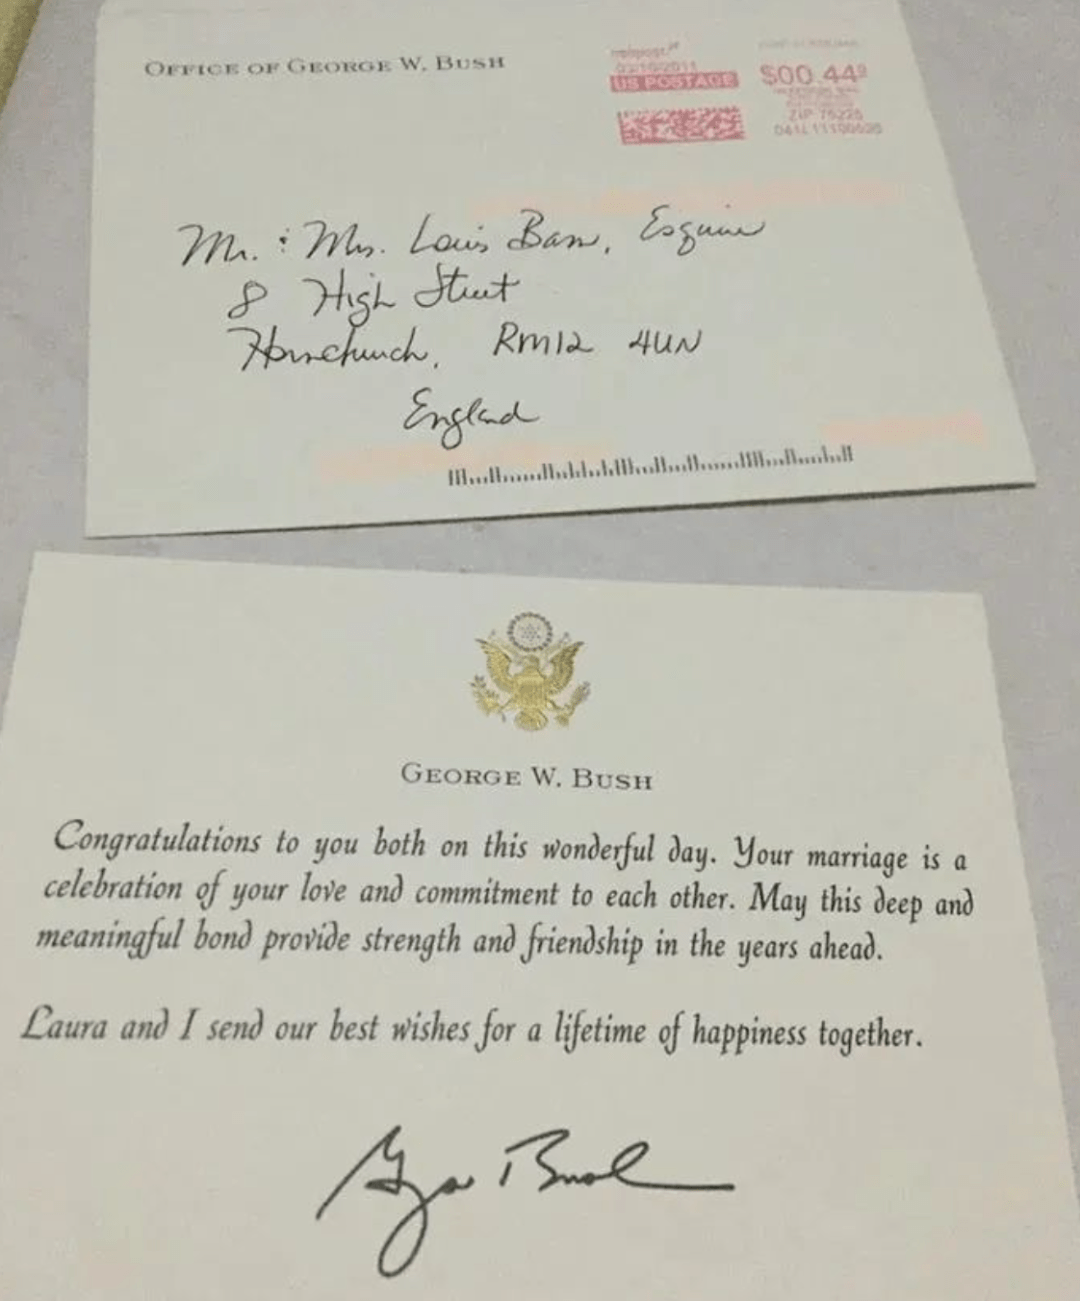 OFFICE OF GEORGE W. BUSH
US POSTAGE $00.44⁹
ZIP 75225
Mr. & Mrs. Louis Bass, Esquire
8 High Street
Hornchurch, RM12 4UN
England
GEORGE W. BUSH
Congratulations to you both on this wonderful day. Your marriage is a
celebration of your love and commitment to each other. May this deep and
meaningful bond provide strength and friendship in the years ahead.
Laura and I send our best wishes for a lifetime of happiness together.